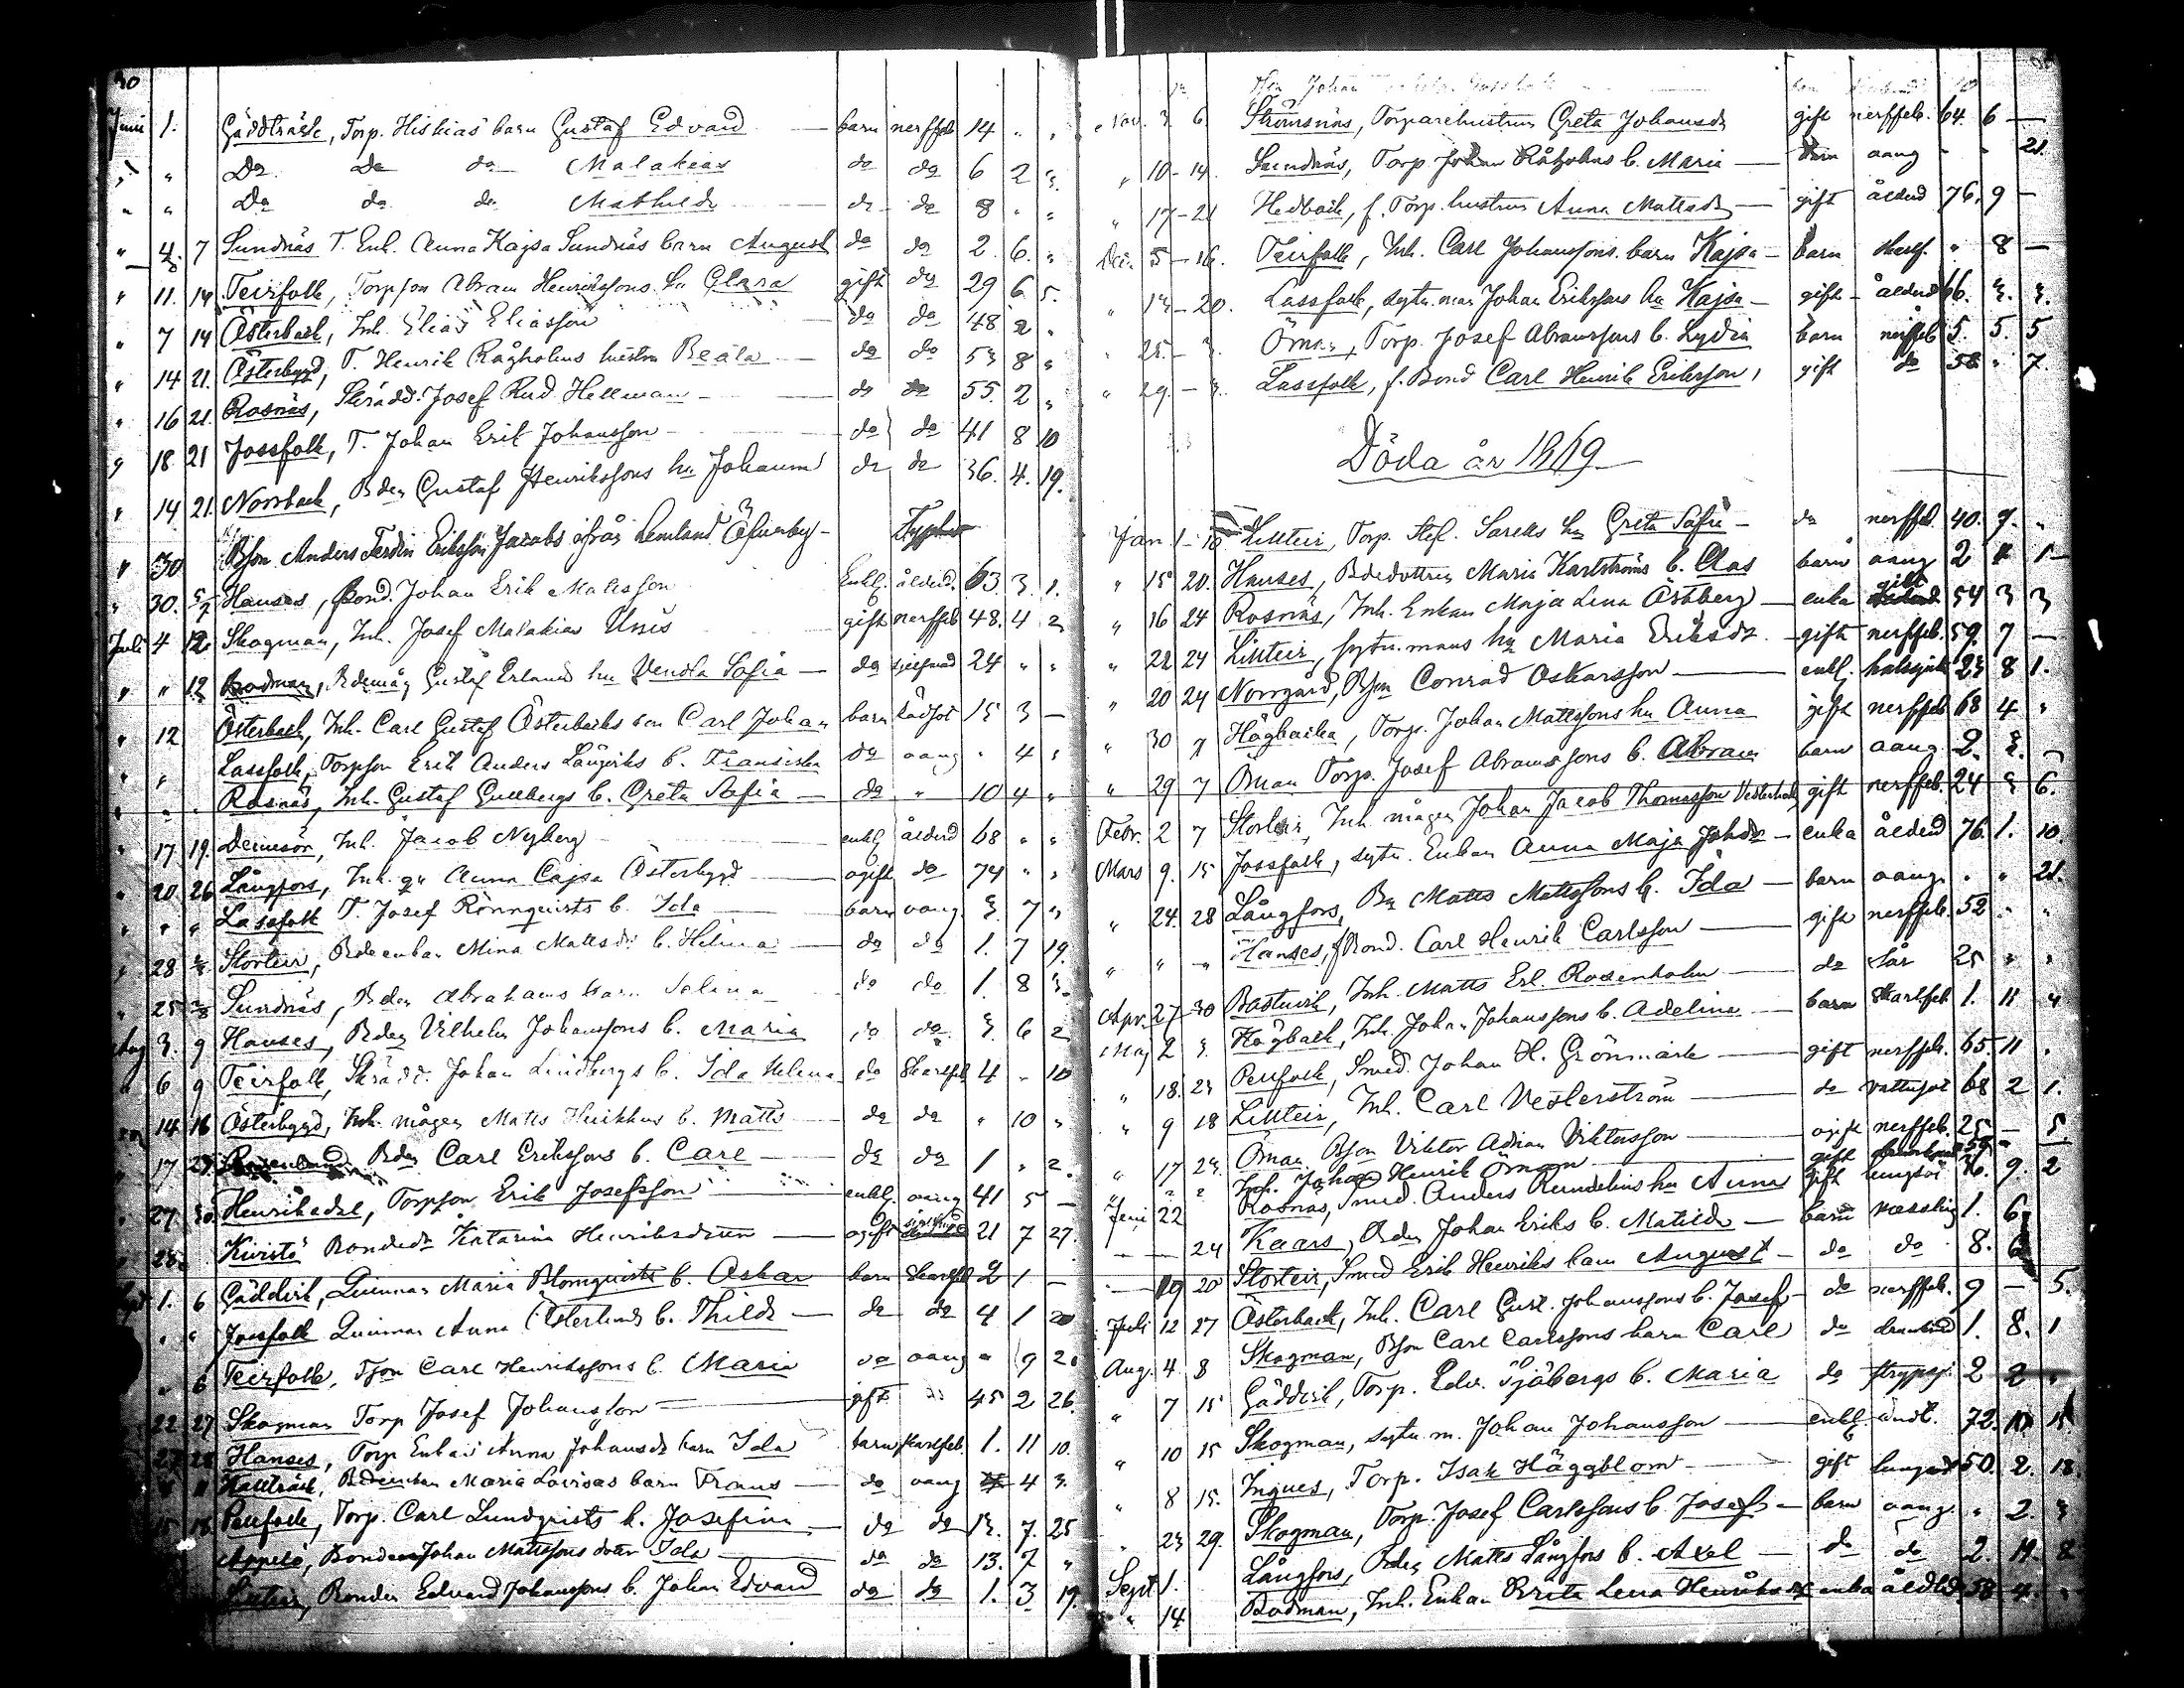 30
Juni 1. Gäddträsk, Torp. Hiskias barn Gustaf Edvard — barn nerffeb 14 " "
" " Do do do Malakias do do 6 2 "
" " Do do do Mathilda do do 8 " "
" 4 7 Sundnäs T. Enk. Anna Kajsa Sundnäs barn August do do 2 6 "
" 11. 14 Teirfolk, Torpson Abram Henrikssons hu Clara gift do 29 6 5.
" 7 14 Österback, Inh. Elias Eliasson do do 48 2 "
" 14 21. Österbygd, T. Henrik Rågholms hustru Beata — do do 53 8 "
" 16 21. Rosnäs, Skrädd. Josef Rud. Hellman — do do 55. 2 "
" 18. 21 Jossfolk, T. Johan Erik Johansson do do 41 8 10
" 14 21. Norrback, Bden Gustaf Henrikssons hu Johanna do do 36. 4. 19.
" 30 Bson Anders Ferdin. Eriksson Jacobs ifrån Lemland Typhus
" 30. Hanses, Bond. Johan Erik Mattsson Enkl. ålderd. 63 3. 1.
Juli 4 12 Skogman, Inh. Josef Malakias Unis gift nerffeb 48. 4 2
" " 12 Bodman, Bdemåg Gustaf Erlands hu Vendla Sofia — do 24 " "
" 12 Österback, Inh. Carl Gustaf Österbacks son Carl Johan barn Rödsot 15 3 —
" " Lassfolk, Torpson Erik Anders Långviks b. Fransiska do aang " 4 "
" " Rosnäs, Inh. Gustaf Gullbergs b. Greta Sofia — do " 10 4 "
" 17 19. Inh. Jacob Nyberg enkl ålderd 68 " "
" 20. 26 Långfors, Inh. qv Anna Cajsa Österbygd — ogift do 74 " "
" " " Lassfolk T. Josef Rönnquists b. Ida — barn aang 3. 7 "
" 28 Storteir, Bdeenkan Mina Mattsdr b. Helena — do do 1. 7 19.
" 25 Sundnäs, Bden Abrahams barn Selina do do 1. 8 3.
Aug 3. 9 Hanses, Bden Vilhelm Johanssons b. Maria do do 3. 6 2
" 6 9 Teirfolk, Skrädd. Johan Lindbergs b. Ida Helena do Skarlfeb 4 " 10
14 16 Österbygd, Inh. mågen Matts b. Matts do do " 10 "
" 17 Bden Carl Erikssons b. Carl — do do 1 " 2.
" 27. 30. Torpson Erik Josefsson enkl. aang 41 5 —
" 28. Kivistö Bondedr Katarina Henriksdotter — ogift 21 7 27.
Sept 1. 6 Gäddvik, Quinnan Maria Blomquists b. Oskar barn Skarlfeb 2 1 —
" " Jossfolk Quinnan Anna Österlunds b. Thilda — do do 4 1 20
" 6 Teirfolk, Tson Carl Henrikssons b. Maria do aang " 9 2.
22 27 Skogman Torp Josef Johansson — gift 45 2 26.
27 28 Hanses, Torp Enkan Anna Johansdr barn Ida barn skarlfeb. 1. 11 10.
Kallträsk, Bdeenkan Maria Lovisas barn Frans — do aang 4 3.
15 18 Purfolk, Torp. Carl Lundqvists b. Josefina — do do 13. 7 25
Appelö, Bonden Johan Mattssons dotter Ida — do do 13. 7 "
Bonden Edvard Johanssons b. Johan Edvard do do 1. 3 19.
Nov. 3 6 Strömsnäs, Torparehustrun Greta Johansdr gift nerffeb. 64. 6 —
" 10 - 14. Sundnäs, Torp Johan Rågholms b. Maria — barn aang - - 21.
" 17 - 21 Hedback, f. Torp. hustrun Anna Mattsdr — gift ålderd 76. 9 —
Dec. 5 - 16. Teirfolk, Inh. Carl Johanssons barn Kajsa — barn Skarlf. " 8 —
" 13 - 20. Lassfolk, sytn. man Johan Erikssons hu Kajsa — gift - ålderd 66. 3. 3.
" 25. - 3. Öman, Torp. Josef Abramssons b. Lydia barn nerffeb 5. 5. 5
" 29. - 3. Lassfolk, f. Bond Carl Henrik Eriksson, gift do 58 " 7.
Döda år 1869
Jan 1 - 10 Litteir, Torp. Stef. Sareks hu Greta Sofia — do nerffeb. 40. 7. "
" 15 20. Hanses, Bdedottren Maria Karlströms b. Clas barn aang 2 " 1 —
" 16 24 Rosnäs, Inh. Enkan Maja Lena Östberg — enka gikt 54 3 3
" 22 24 Litteir, sytn. mans hu Maria Eriksdr — gift nerffeb. 59. 7 —
" 20 24 Norrgård, Bson Conrad Oskarsson — enkl. halssjuk 23 8 1.
" 30 7 Högbacka, Torp. Johan Mattssons hu Anna gift nerffeb 68 4 "
" 29 7 Öman Torp. Josef Abramssons b. Abram barn aang. 2. 3. —
Febr. 2 7 Storteir, Inh. mågen Johan Jacob Thomasson Vesterback gift nerffeb. 24 3 6.
Mars 9. 15 Jossfolk, sytn. Enkan Anna Maja Johdr — enka ålderd 76. 1. 10.
" 24. 28 Långfors, Bn Matts Mattssons b. Ida — barn aang. " " 21.
" " " Hanses, f Bond. Carl Henrik Carlsson — gift nerffeb. 52 " "
Apr. 27 30 Bastuvik, Inh. Matts Erl. Rosenholm — do sår 25 " "
Maj 2 3. Högback, Inh. Johan Johanssons b. Adelina — barn Skarlfeb. 1. 11 4
" 18. 23 Purfolk, Smed. Johan H. Grönmark — gift nerffeb. 65. 11 "
" 9 18 Litteir, Inh. Carl Vesterström — do vattusot 68 2 1.
" 17 23. Öman Bson Viktor Adrian Viktorsson — ogift nerffeb. 25 — 5
" " " Inh. Johan Henrik Öman — gift 59 —
Juni 22 Rosnäs, Smed. Anders Rundelins hu Anna gift lungsot 76. 9. 2
— — 24 Kaars, Bden Johan Eriks b. Matilda — barn messling 1. 6
— 19 20 Storteir, Smed Erik Henriks barn August — do do 8. 6
Juli 12 27 Österback, Inh. Carl Gust. Johanssons b. Josef — do nerffeb. 9 — 5.
Aug. 4 8 Skogman, Bson Carl Carlssons barn Carl do drunknad 1. 8. 1
" 7 15 Gäddvik, Torp. Edv. Sjöbergs b. Maria do strypsj. 2 2 "
" 10 15 Skogman, sytn. m. Johan Johansson — enkl. andt. 72. 10. 15
" 8 15. Ingves, Torp. Isak Häggblom — gift lungsot 50. 2. 18.
" 23 29. Skogman, Torp. Josef Carlssons b. Josef — barn aang. " 2. 3
Sept 1. Långfors, Bden Matts Långfors b. Axel — do do 2. 11. 8
" 14 Bodman, Inh. Enkan Brita Lena enka ålderd. 58 4. "